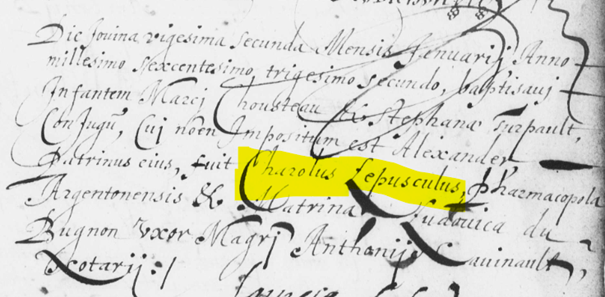 Die Jovina vigesima secunda Mensis Januarij Anno
millesimo sexcentesimo trigesimo secundo, baptisavi
Infantem Marcj Chousteau & Stephana Turpault,
Conjugũ, Cuj nõen Impositum est Alexander
Patrinus eius, fuit Charolus Lepusculus, Pharmacopola
Argentonensis &. Matrina Ludovica du
Bugnon Vxor Magrj Anthonij Cauinault,
Notarij :/